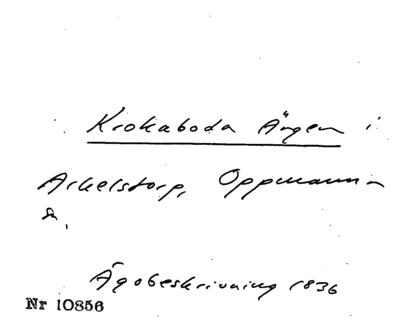 Krokaboda Ängen i
Arkelstorp, Oppmanna
s.
Ägobeskrivning 1836
Nr 10856